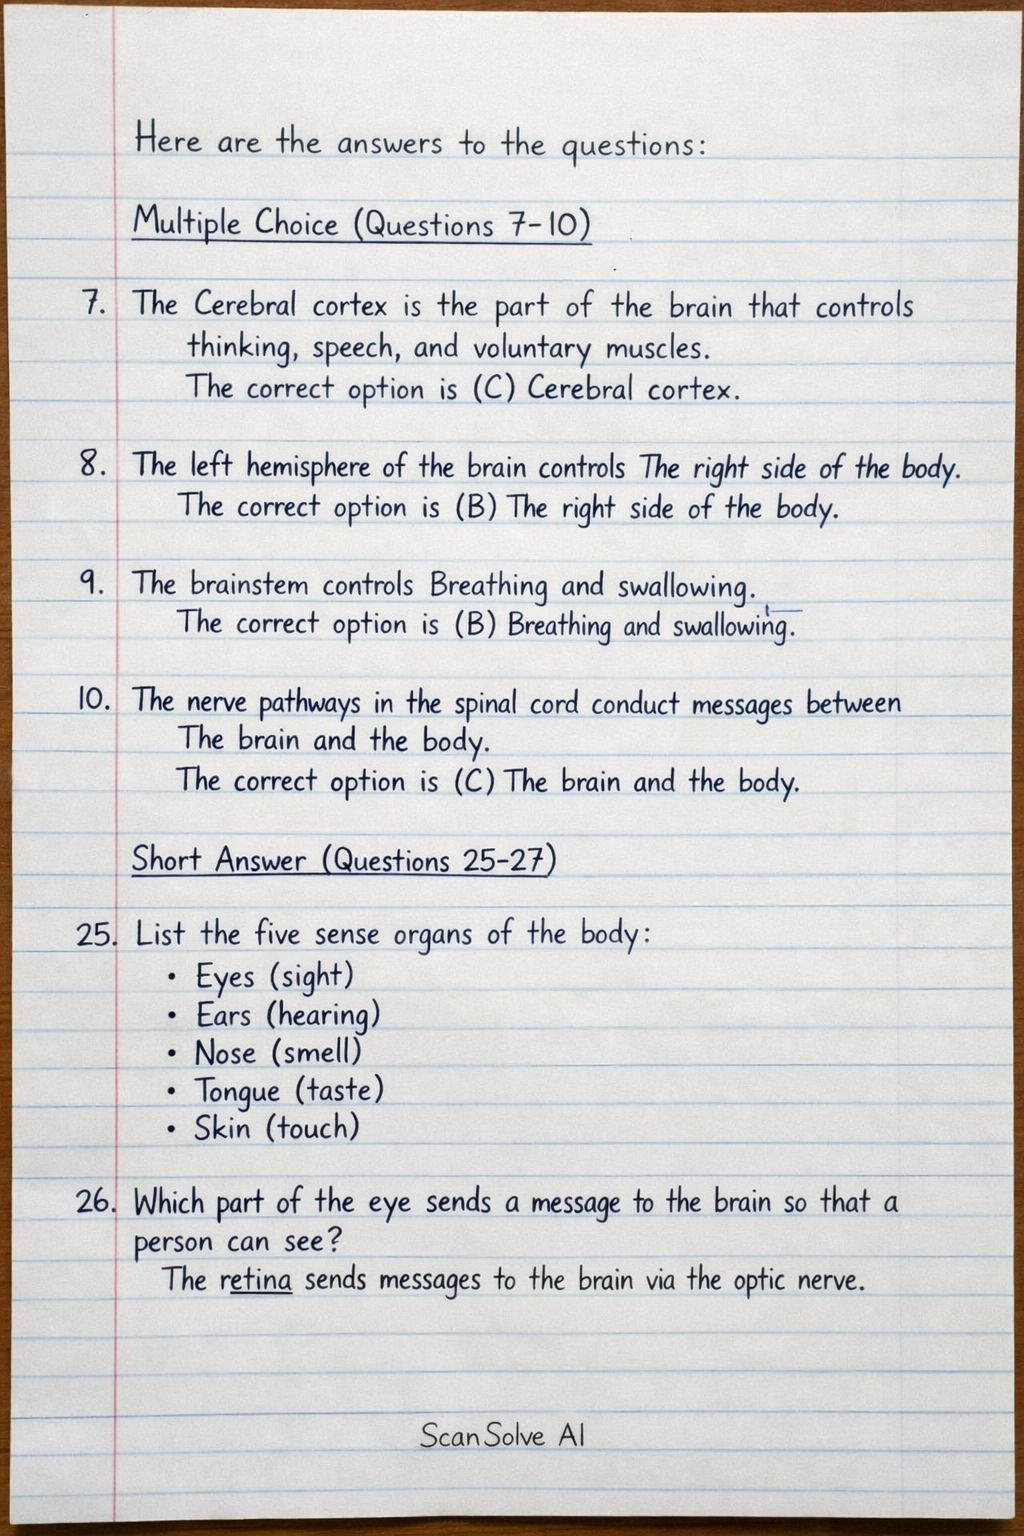 Here are the answers to the questions:
Multiple Choice (Questions 7-10)
7. The Cerebral cortex is the part of the brain that controls
thinking, speech, and voluntary muscles.
The correct option is (C) Cerebral cortex.
8. The left hemisphere of the brain controls The right side of the body.
The correct option is (B) The right side of the body.
9. The brainstem controls Breathing and swallowing.
The correct option is (B) Breathing and swallowing.
10. The nerve pathways in the spinal cord conduct messages between
The brain and the body.
The correct option is (C) The brain and the body.
Short Answer (Questions 25-27)
25. List the five sense organs of the body:
• Eyes (sight)
• Ears (hearing)
• Nose (smell)
• Tongue (taste)
• Skin (touch)
26. Which part of the eye sends a message to the brain so that a
person can see?
The retina sends messages to the brain via the optic nerve.
ScanSolve AI